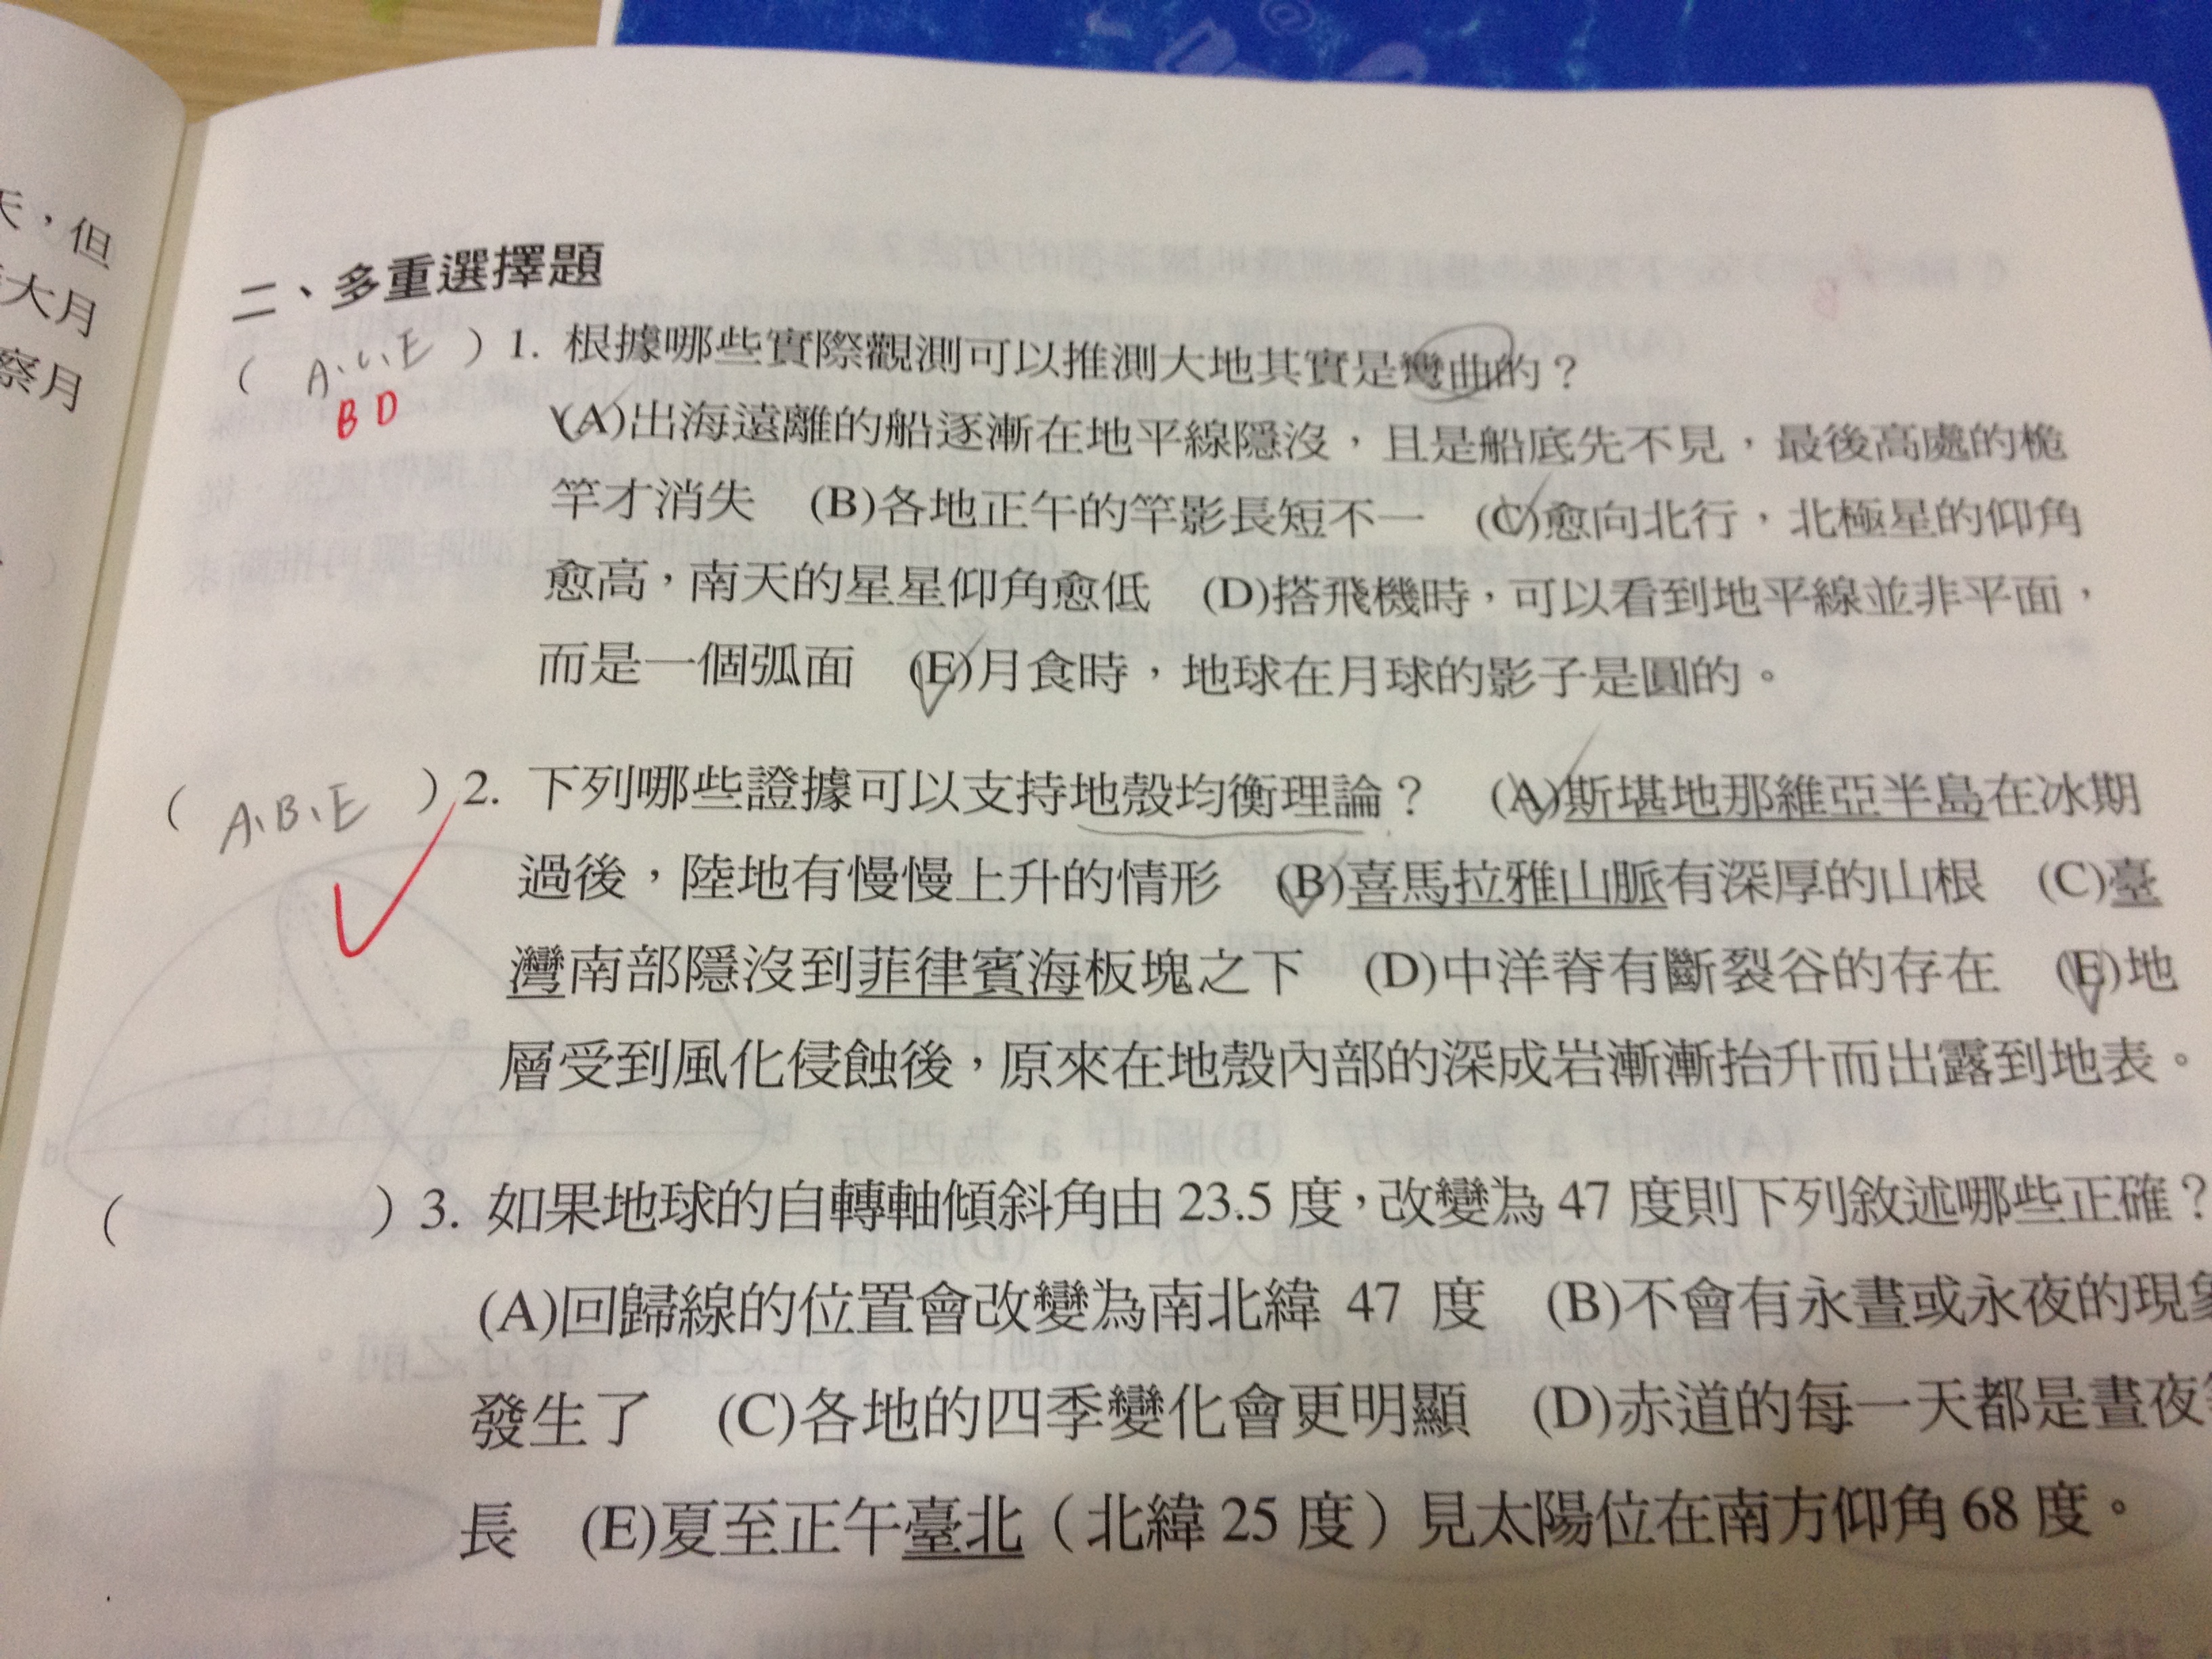 天，但
大月
察月
二、多重選擇題
( A、C、E ) 1. 根據哪些實際觀測可以推測大地其實是彎曲的？
B D
(A)出海遠離的船逐漸在地平線隱沒，且是船底先不見，最後高處的桅
竿才消失 (B)各地正午的竿影長短不一 (C)愈向北行，北極星的仰角
愈高，南天的星星仰角愈低 (D)搭飛機時，可以看到地平線並非平面，
而是一個弧面 (E)月食時，地球在月球的影子是圓的。
( A、B、E ) 2. 下列哪些證據可以支持地殼均衡理論？ (A)斯堪地那維亞半島在冰期
過後，陸地有慢慢上升的情形 (B)喜馬拉雅山脈有深厚的山根 (C)臺
灣南部隱沒到菲律賓海板塊之下 (D)中洋脊有斷裂谷的存在 (E)地
層受到風化侵蝕後，原來在地殼內部的深成岩漸漸抬升而出露到地表。
( ) 3. 如果地球的自轉軸傾斜角由 23.5 度，改變為 47 度則下列敘述哪些正確？
(A)回歸線的位置會改變為南北緯 47 度 (B)不會有永晝或永夜的現象
發生了 (C)各地的四季變化會更明顯 (D)赤道的每一天都是晝夜
長 (E)夏至正午臺北（北緯 25 度）見太陽位在南方仰角 68 度。